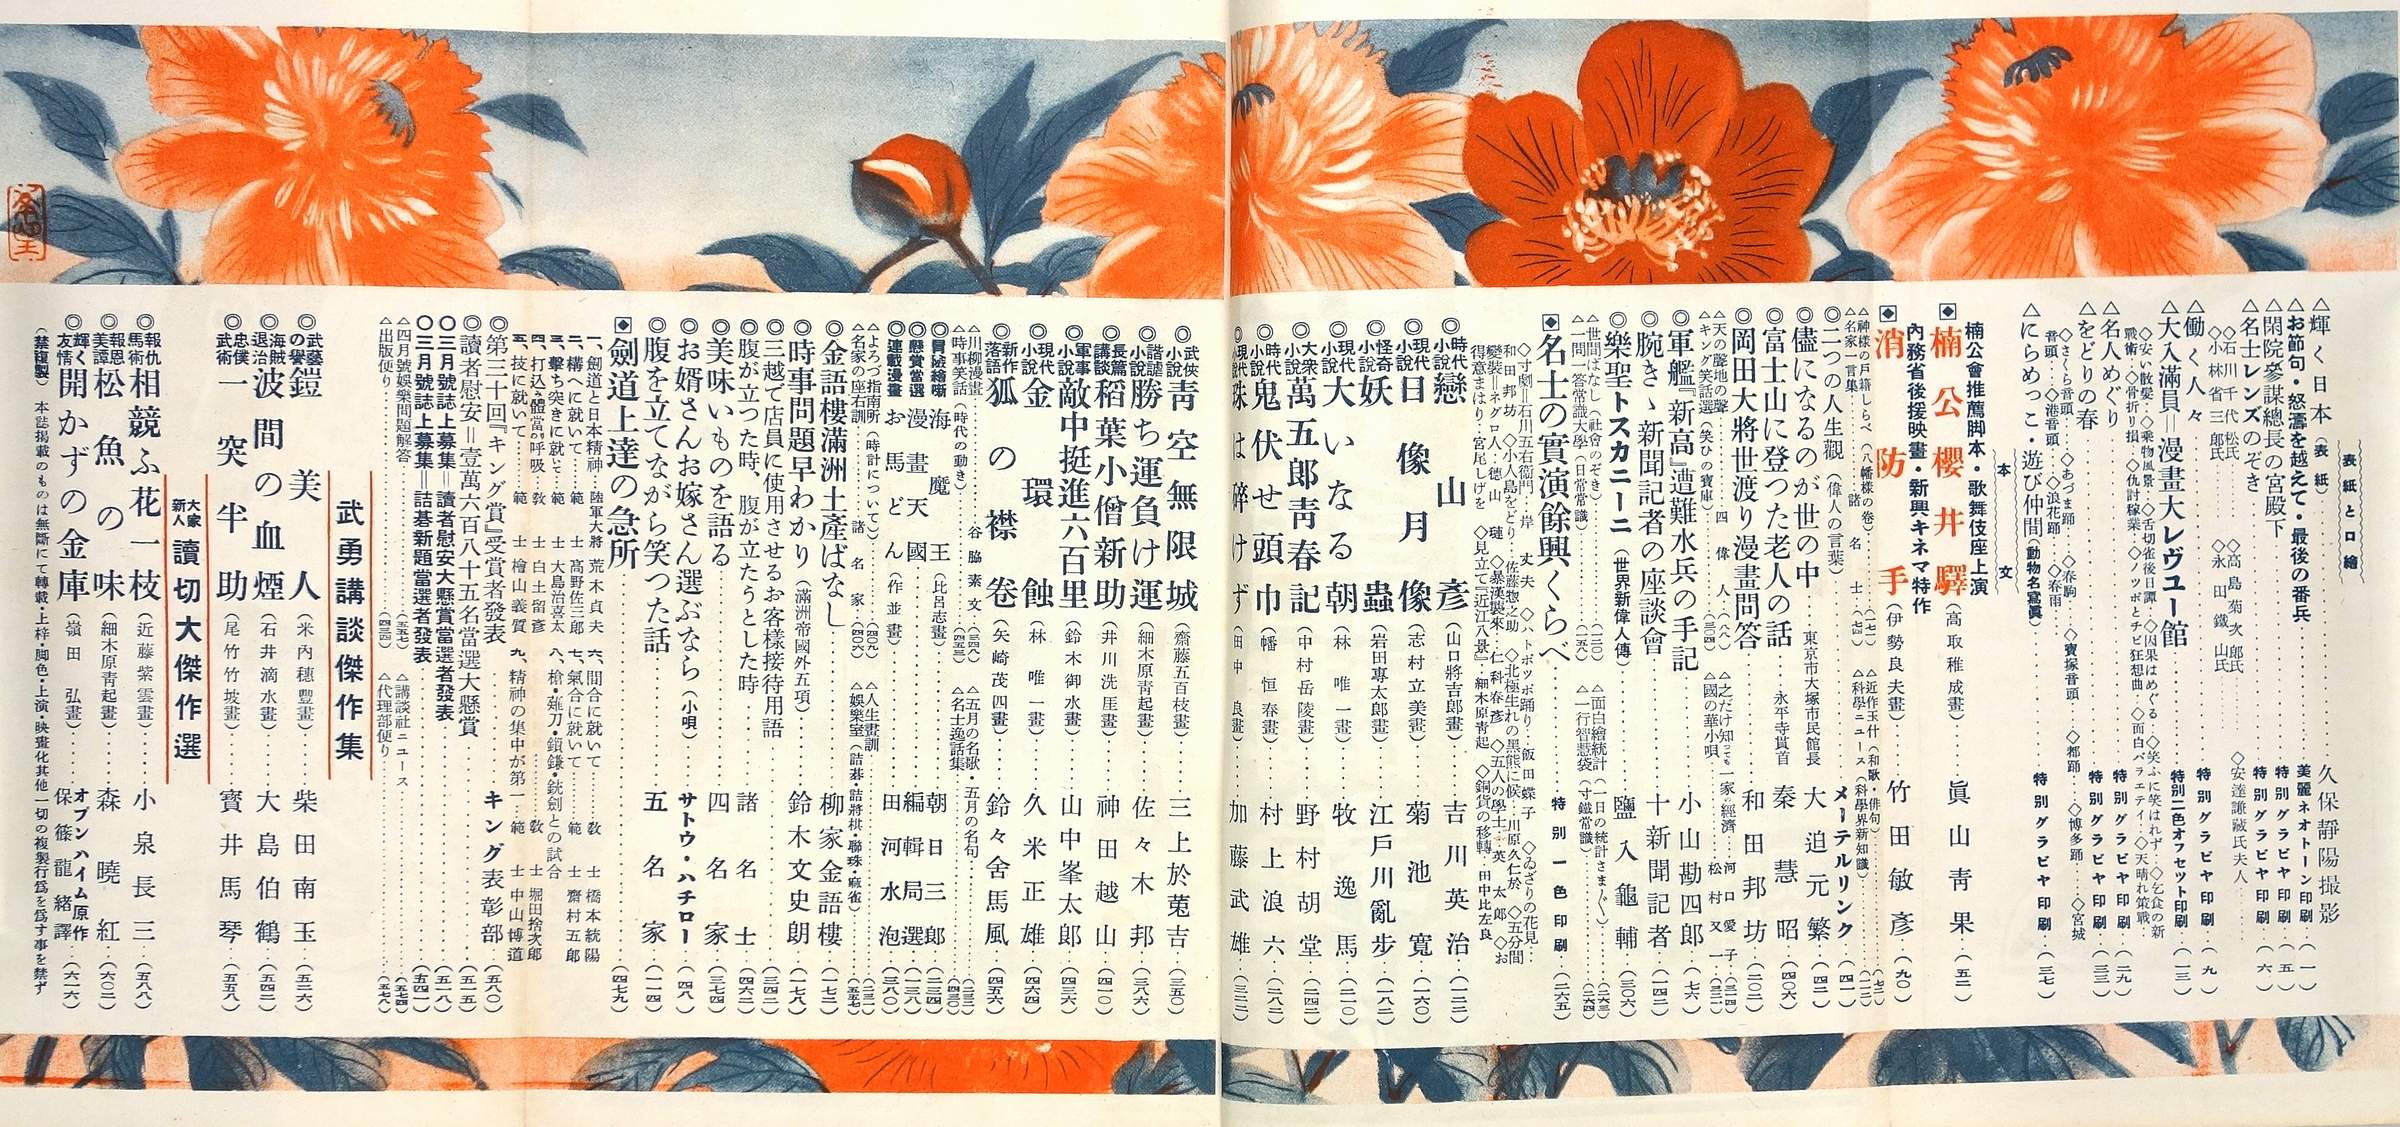 表紙と口繪
△輝く日本(表紙)……久保靜陽撮影(一)
△お節句・怒濤を越えて・最後の番兵……美麗ネオトーン印刷(五)
△閑院參謀總長の宮殿下……特別グラビヤ印刷(六)
△名士レンズのぞき
◇石川千代松氏 ◇高島菊次郎氏 ◇安達謙藏氏夫人
◇小林省三郎氏 ◇永田鐵山氏
△働く人々……特別グラビヤ印刷(九)
△大入滿員=漫畫大レヴユー館……特別二色オフセツト印刷(一三)
◇安い散髮・◇乘物風景・◇舌切雀後日譚・◇因果はめぐる・◇笑ふに笑はれず・◇乞食の新
戰術・◇骨折り損・◇仇討稼業・◇ノツポとチビ狂想曲・◇面白バラエテイ・◇天晴れ策戰
△名人めぐり……特別グラビヤ印刷(二九)
△をどりの春……特別グラビヤ印刷(三三)
◇さくら音頭…◇あづま踊…◇春駒…◇寶塚音頭…◇都踊…◇宮城
音頭…◇港音頭…◇浪花踊…◇春雨…◇博多踊
△にらめつこ・遊び仲間(動物名寫眞)……特別グラビヤ印刷(三七)
本文
楠公會推薦脚本・歌舞伎座上演
楠公櫻井驛(高取稚成畫)……眞山青果(五二)
內務省後援映畫・新興キネマ特作
消防手(伊勢良夫畫)……竹田敏彥(九〇)
神樣の戶籍しらべ(八幡樣の卷)……(七一) △近作玉什(和歌・俳句)……(七二)
△名家一言集……諸名士(七四) △科學ニュース(科學界新知識)……(一二二)
◎二つの人生觀(偉人の言葉)……メーテルリンク(四一)
◎儘になるのが世の中……東京市大塚市民館長 大迫元繁(四二)
◎富士山に登つた老人の話……永平寺貫首 秦慧昭(四〇六)
◎岡田大將世渡り漫畫問答……和田邦坊(二〇二)
△天の聲地の聲……四偉人(八八) △之だけ知つてゐる一家の經濟…河口愛子(三二四)
△キング笑話選(笑ひの寶庫)……(三〇四) △國の華小唄……松村又一(三二一)
◎軍艦『新高』遭難水兵の手記……小山勘四郎(七六)
◎腕きゝ新聞記者の座談會……十新聞記者(一四二)
◎樂聖トスカニーニ(世界新偉人傳)……鹽入龜輔(三〇六)
△世間ばなし(社會のぞき)……(一二〇) △面白繪統計(一日の統計さまざま)……(二六三)
△一問一答常識大學(日常常識)……(一五八) △一行智慧袋(寸鐵常識)……(二六四)
名士の實演餘興くらべ……特別一色印刷(二六五)
◇寸劇=石川五右衞門・岸丈夫 ◇ハトポツポ踊り・飯田蝶子 ◇ゐざりの花見
和田邦坊 ◇小人島をどり・佐藤惣之助 ◇北極生れの黑熊に候・川原久仁於 ◇五分間
變裝=ネグロ人・德山璉 ◇暴漢襲來・仁科春彥 ◇五人の學士・英太郎 ◇お
得意まはり・宮尾しげを ◇見立て『近江八景』・細木原靑起 ◇銅貨の移轉・田中比左良
◎時代小說 戀山彥(山口將吉郎畫)……吉川英治(一二二)
◎現代小說 日像月像(志村立美畫)……菊池寬(一六〇)
◎怪奇小說 妖蟲(岩田專太郎畫)……江戶川亂步(一八二)
◎現代小說 大いなる朝(林唯一畫)……牧逸馬(二一〇)
◎大衆小說 萬五郎靑春記(中村岳陵畫)……野村胡堂(二四二)
◎時代小說 鬼伏せ頭巾(幡恒春畫)……村上浪六(二八二)
◎現代小說 珠は碎けず(田中良畫)……加藤武雄(三二二)
◎武俠小說 靑空無限城(齋藤五百枝畫)……三上於菟吉(三五〇)
◎諧謔小說 勝ち運負け運(細木原靑起畫)……佐々木邦(三八六)
◎長篇講談 稻葉小僧新助(井川洗厓畫)……神田越山(四一〇)
◎軍事小說 敵中挺進六百里(鈴木御水畫)……山中峯太郎(四三六)
◎現代小說 金環蝕(林唯一畫)……久米正雄(四六四)
◎新作落語 狐の襟卷(矢崎茂四畫)……鈴々舍馬風(四五六)
△川柳漫畫……谷脇素文(三四八) △五月の名歌・五月の名句……(一三一)
△時事笑話(時代の動き)……(四五三) △名士逸話集……(四三〇)
◎冒險繪噺 海魔王(比呂志畫)……朝日三郎(二二四)
◎懸賞當選 漫畫天國……編輯局選(一三八)
◎連載漫畫 お馬どん(作並畫)……田河水泡(三八〇)
△よろづ指南所(時計について)……(四〇九) △人生畫訓……(三二一)
△名家の座右訓……諸名家(四〇六) △娛樂室(詰碁・詰將棋・聯珠・麻雀)……(五五七)
◎金語樓滿洲土產ばなし……柳家金語樓(一七二)
◎時事問題早わかり(滿洲帝國外五項)……鈴木文史朗(一七八)
◎三越で店員に使用させるお客樣接待用語……(三四二)
◎腹が立つた時、腹が立たうとした時……諸名士(四六二)
◎美味いものを語る……四名家(三七四)
◎お婿さんお嫁さん選ぶなら(小唄)……サトウ・ハチロー(四八)
◎腹を立てながら笑つた話……五名家(一一四)
劍道上達の急所……(四七九)
一、劍道と日本精神・陸軍大將 荒木貞夫 六、間合に就いて……敎士 橋本統陽
二、構へに就いて……範士 高野佐三郎 七、氣合に就いて……範士 齋村五郎
三、擊ち突きに就いて……範士 大島治喜太 八、槍・薙刀・鎖鎌・銃劍との試合
四、打込み體當の呼吸・敎士 白土留彥 ……敎士 堀田捨次郎
五、技に就いて……範士 檜山義質 九、精神の集中が第一・範士 中山博道
◎第三十回『キング賞』受賞者發表……キング表彰部(五八〇)
◎讀者慰安=壹萬六百八十五名當選大懸賞……(五一五)
〇三月號誌上募集=讀者慰安大懸賞當選者發表……(五一八)
〇三月號誌上募集=詰碁新題當選者發表……(五四一)
△四月號娛樂問題解答……(五五七) △講談社ニュース……(五七四)
△出版便り……(四三〇) △代理部便り……(五七八)
武勇講談傑作集
◎武藝の譽 鎧美人(米內穗豐畫)……柴田南玉(五二六)
◎海賊退治 波間の血煙(石井滴水畫)……大島伯鶴(五四二)
◎忠僕武術 一突半助(尾竹竹坡畫)……寶井馬琴(五五八)
大家新人 讀切大傑作選
◎報仇馬術 相競ふ花一枝(近藤紫雲畫)……小泉長三(五八八)
◎報恩美譚 松魚の味(細木原靑起畫)……森曉紅(六〇二)
◎輝く友情 開かずの金庫(嶺田弘畫)……オプンハイム原作 保篠龍緖譯(六一六)
(禁複製) 本誌揭載のものは無斷にて轉載・上梓・脚色・上演・映畫化其他一切の複製行爲を爲す事を禁ず